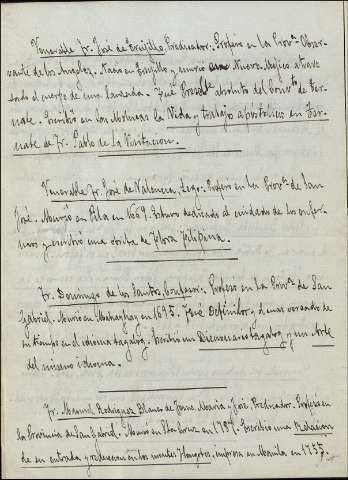 Venerable Fr. José de Trujillo, Predicador. Profeso en la Prov.ª Obser-
vante de los Angeles. Nació en Trujillo y murió en Nuevo Mejico atrave-
sado el cuerpo de una lanzada. Fué Presid.te absoluto del Conv.to de Ter-
nate. Escribió en los Molucas la Vida y trabajos apostólicos en Ter-
nate de Fr. Pablo de la Visitacion.
Venerable Fr. José de Valencia, Lego. Profesó en la Prov.ª de San
José. Murió en Pila en 1669. Estuvo dedicado al cuidado de los enfer-
mos y escribió una obrita de Flora Filipina.
Fr. Domingo de los Santos, Confesor. Profeso en la Prov.ª de San
Gabriel. Murió en Mahayhay en 1695. Fué Definidor, y el mas versado de
su tiempo en el idioma tagalog. Escribió un Diccionario tagalog y un Arte
del mismo idioma.
Fr. Manuel Rodriguez Blanco de Jesus, Maria y José, Predicador. Profesó en
la Provincia de San Gabriel. Murió en Sta. Cruz en 1787. Escribió una Relacion
de su entrada y reduccion en los montes Ylongotes, impresa en Manila en 1755.